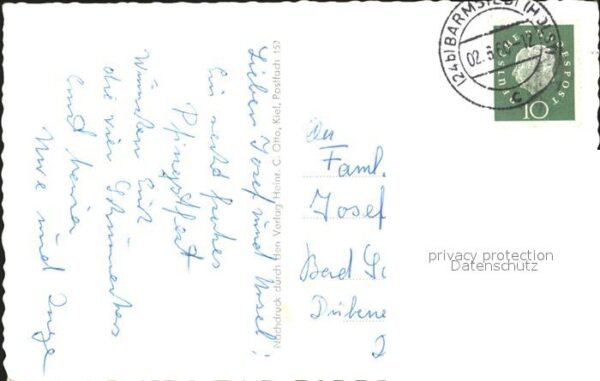 Lieber Josef und Ursel!
Ein recht frohes
Pfingstfest
Wünschen Euch
die vier
Ernst Heinr
Uwe und Inge
Nachdruck durch den Verlag Heinr. C. Otto, Kiel, Postfach 157
(24b) BARMSTEDT (HOLST)
02. 6. 60. - 17
c
DEUTSCHE BUNDESPOST
10
Faml.
Josef
Bad
privacy protection
Datenschutz